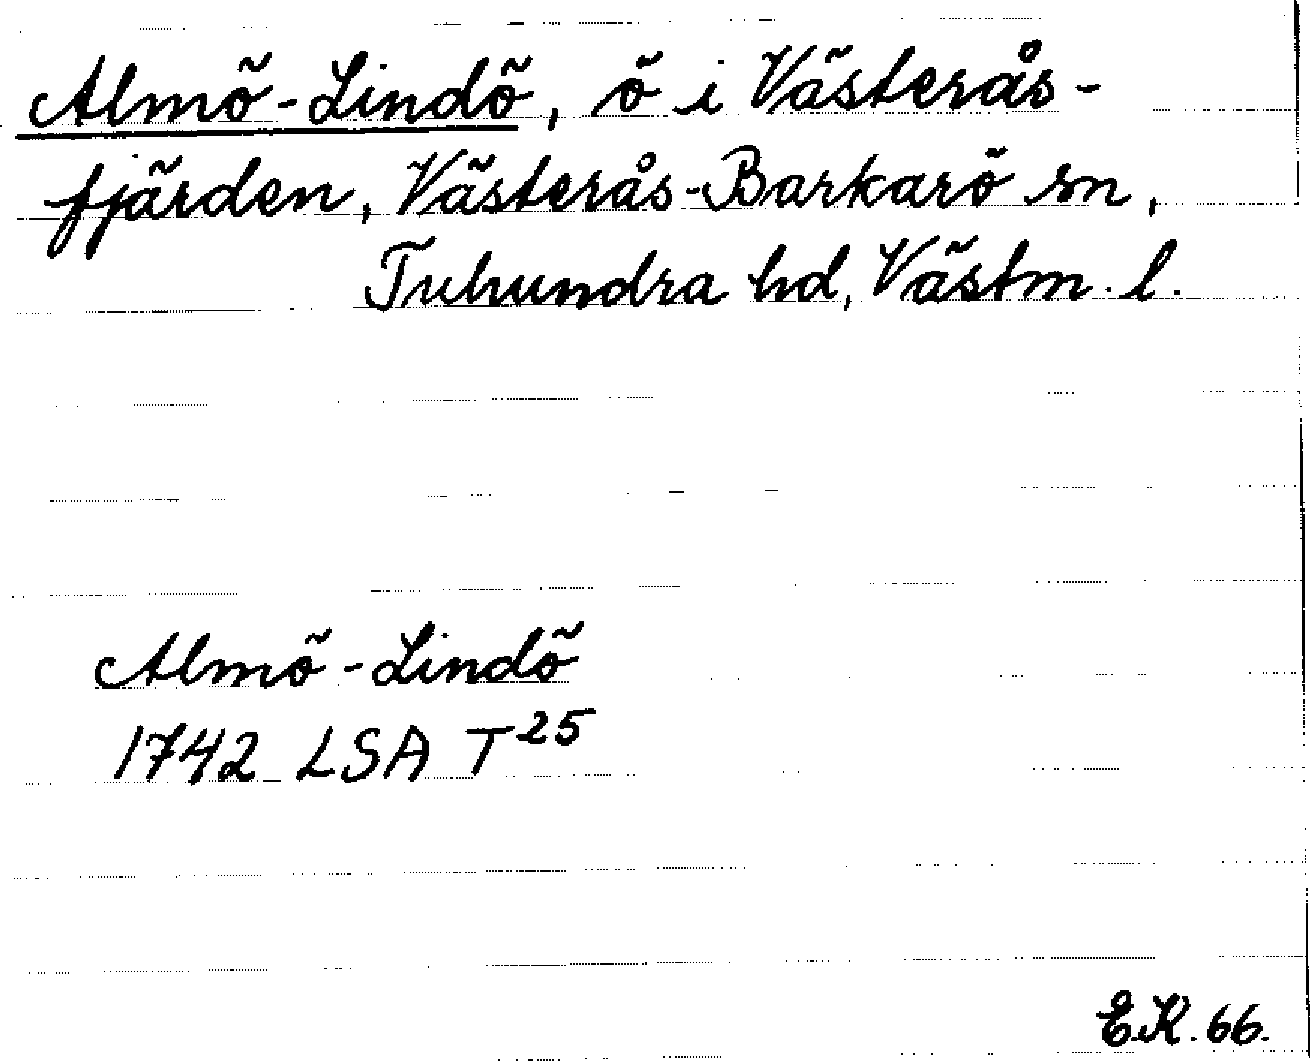 Almö-Lindö, ö i Västerås-
fjärden, Västerås-Barkarö sn,
Tuhundra hd, Västm. l.
Almö-Lindö
1742 LSA T25
E.K. 66.